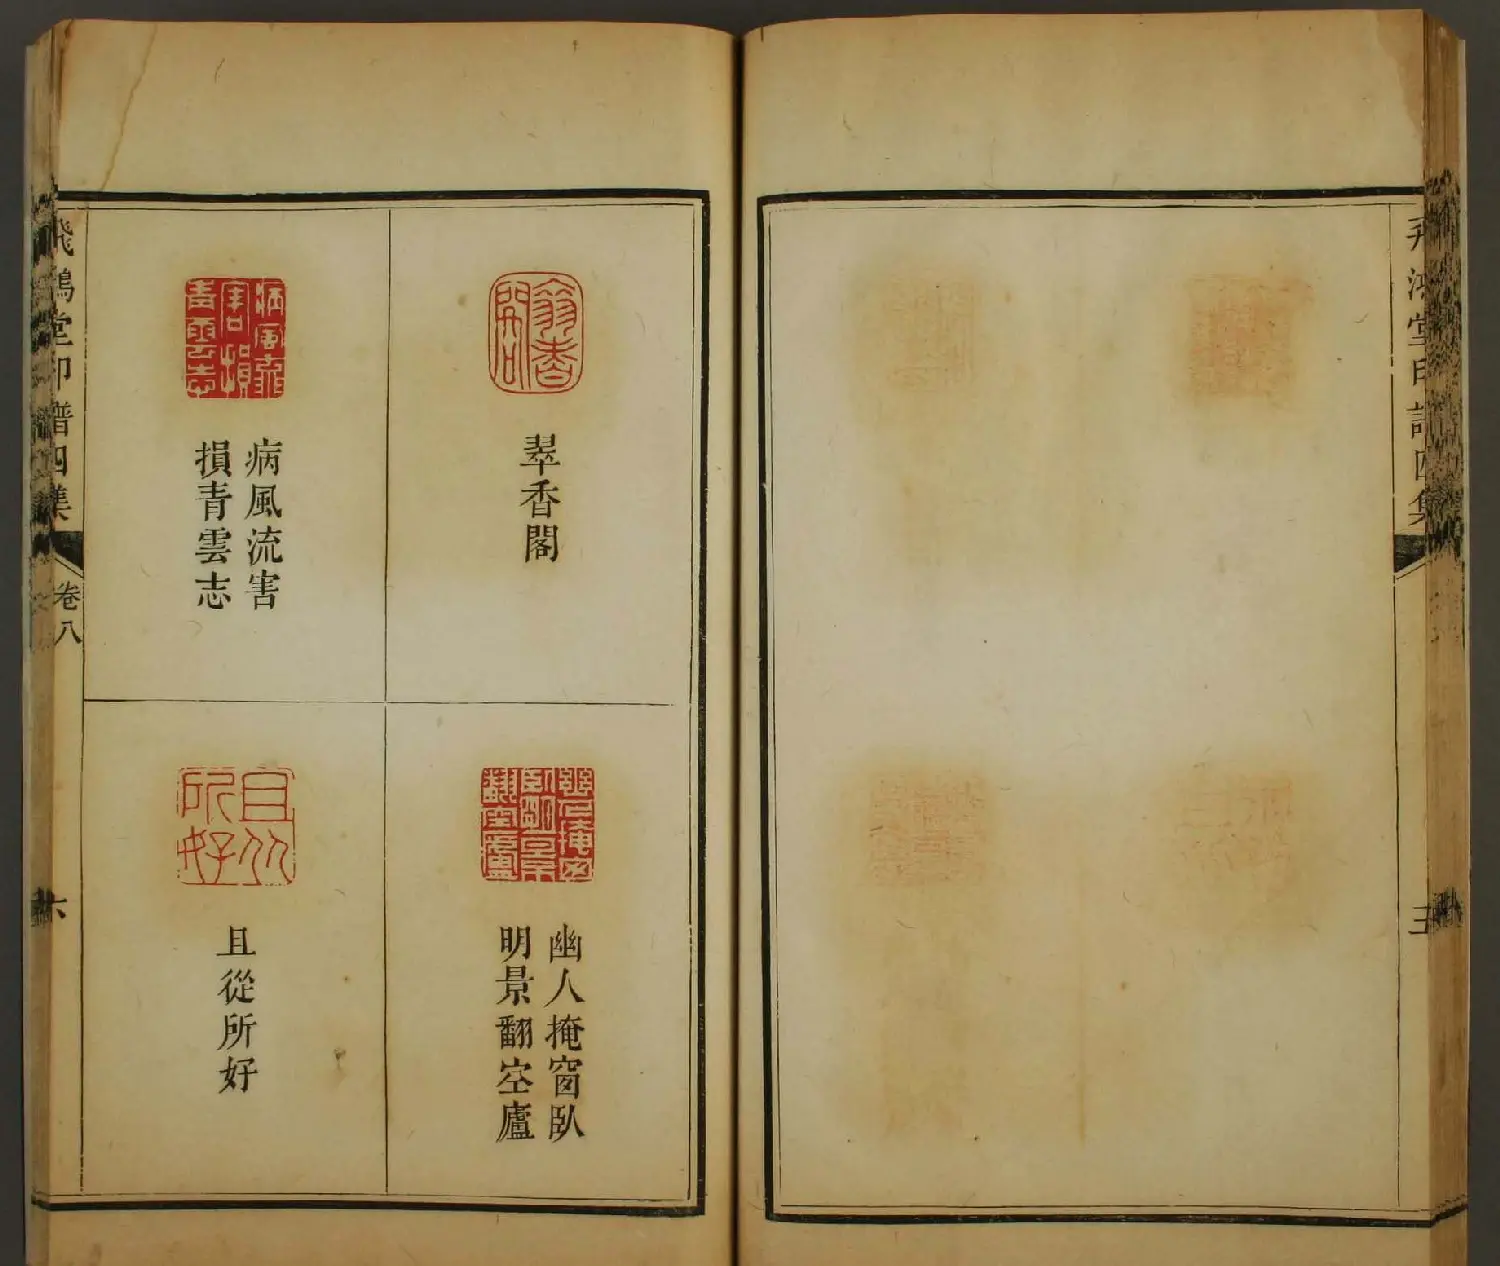 飛鴻堂印譜四集
翠香閣
幽人掩窗臥
明景翻空廬
病風流害
損青雲志
且從所好
飛鴻堂印譜四集
卷八
六